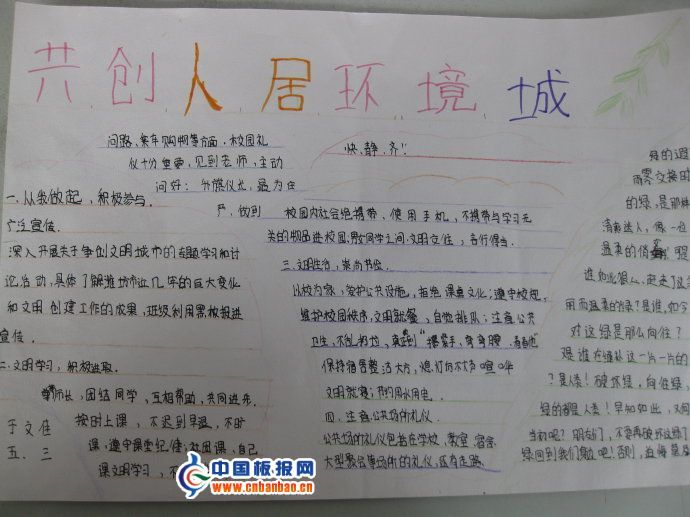 共创人居环境城
一.从我做起,积极参与.
广泛宣传.
深入开展关于争创文明城市的专题学习和讨
论活动,具体了解潍坊市近几年的巨大变化
和文明创建工作的成果,班级利用黑板报进
宣传.
二.文明学习,积极进取.
师长,团结同学,互相帮助,共同进步.
按时上课,不迟到早退,不旷
课,遵守课堂纪律,
课文明学习,不
于文佳
五.三
问路、乘车购物等方面.校园礼
仪十分重要,见到老师,主动
问好;升旗仪式,最为庄
严.做到
快.静.齐!
校园内社会绝携带、使用手机,不携带与学习无
关的物品进校园.男女同学之间.文明交往,言行得当.
三.文明生活,崇尚节俭.
以校为家,爱护公共设施,拒绝课桌文化;遵守校规.
维护校园秩序,文明就餐,自觉排队;注意公共
卫生,不乱扔垃圾,真正做到"摆摆手、弯弯腰
保持宿舍整洁大方,熄灯后不大声喧哗
文明就寝;节约用水用电.
四.注意公共场所礼仪
公共场所礼仪包括在学校、教室宿舍
大型聚会等场所的礼仪,还有走路.
绿的遐
雨零交换时
的绿,是那样
清新迷人,像一位
温柔的
谁如此狠心,赶走了这
用而温柔的绿?是谁,如今
对这绿是那么向往?
是谁在修补这一片一片的
?是人类!破坏绿,向往绿,
绿的都是人类!早知如此,又何
当初呢?朋友们,不要再破坏这绿了
绿回到我们身边吧!否则,
中国板报网
www.cnbanbao.cn